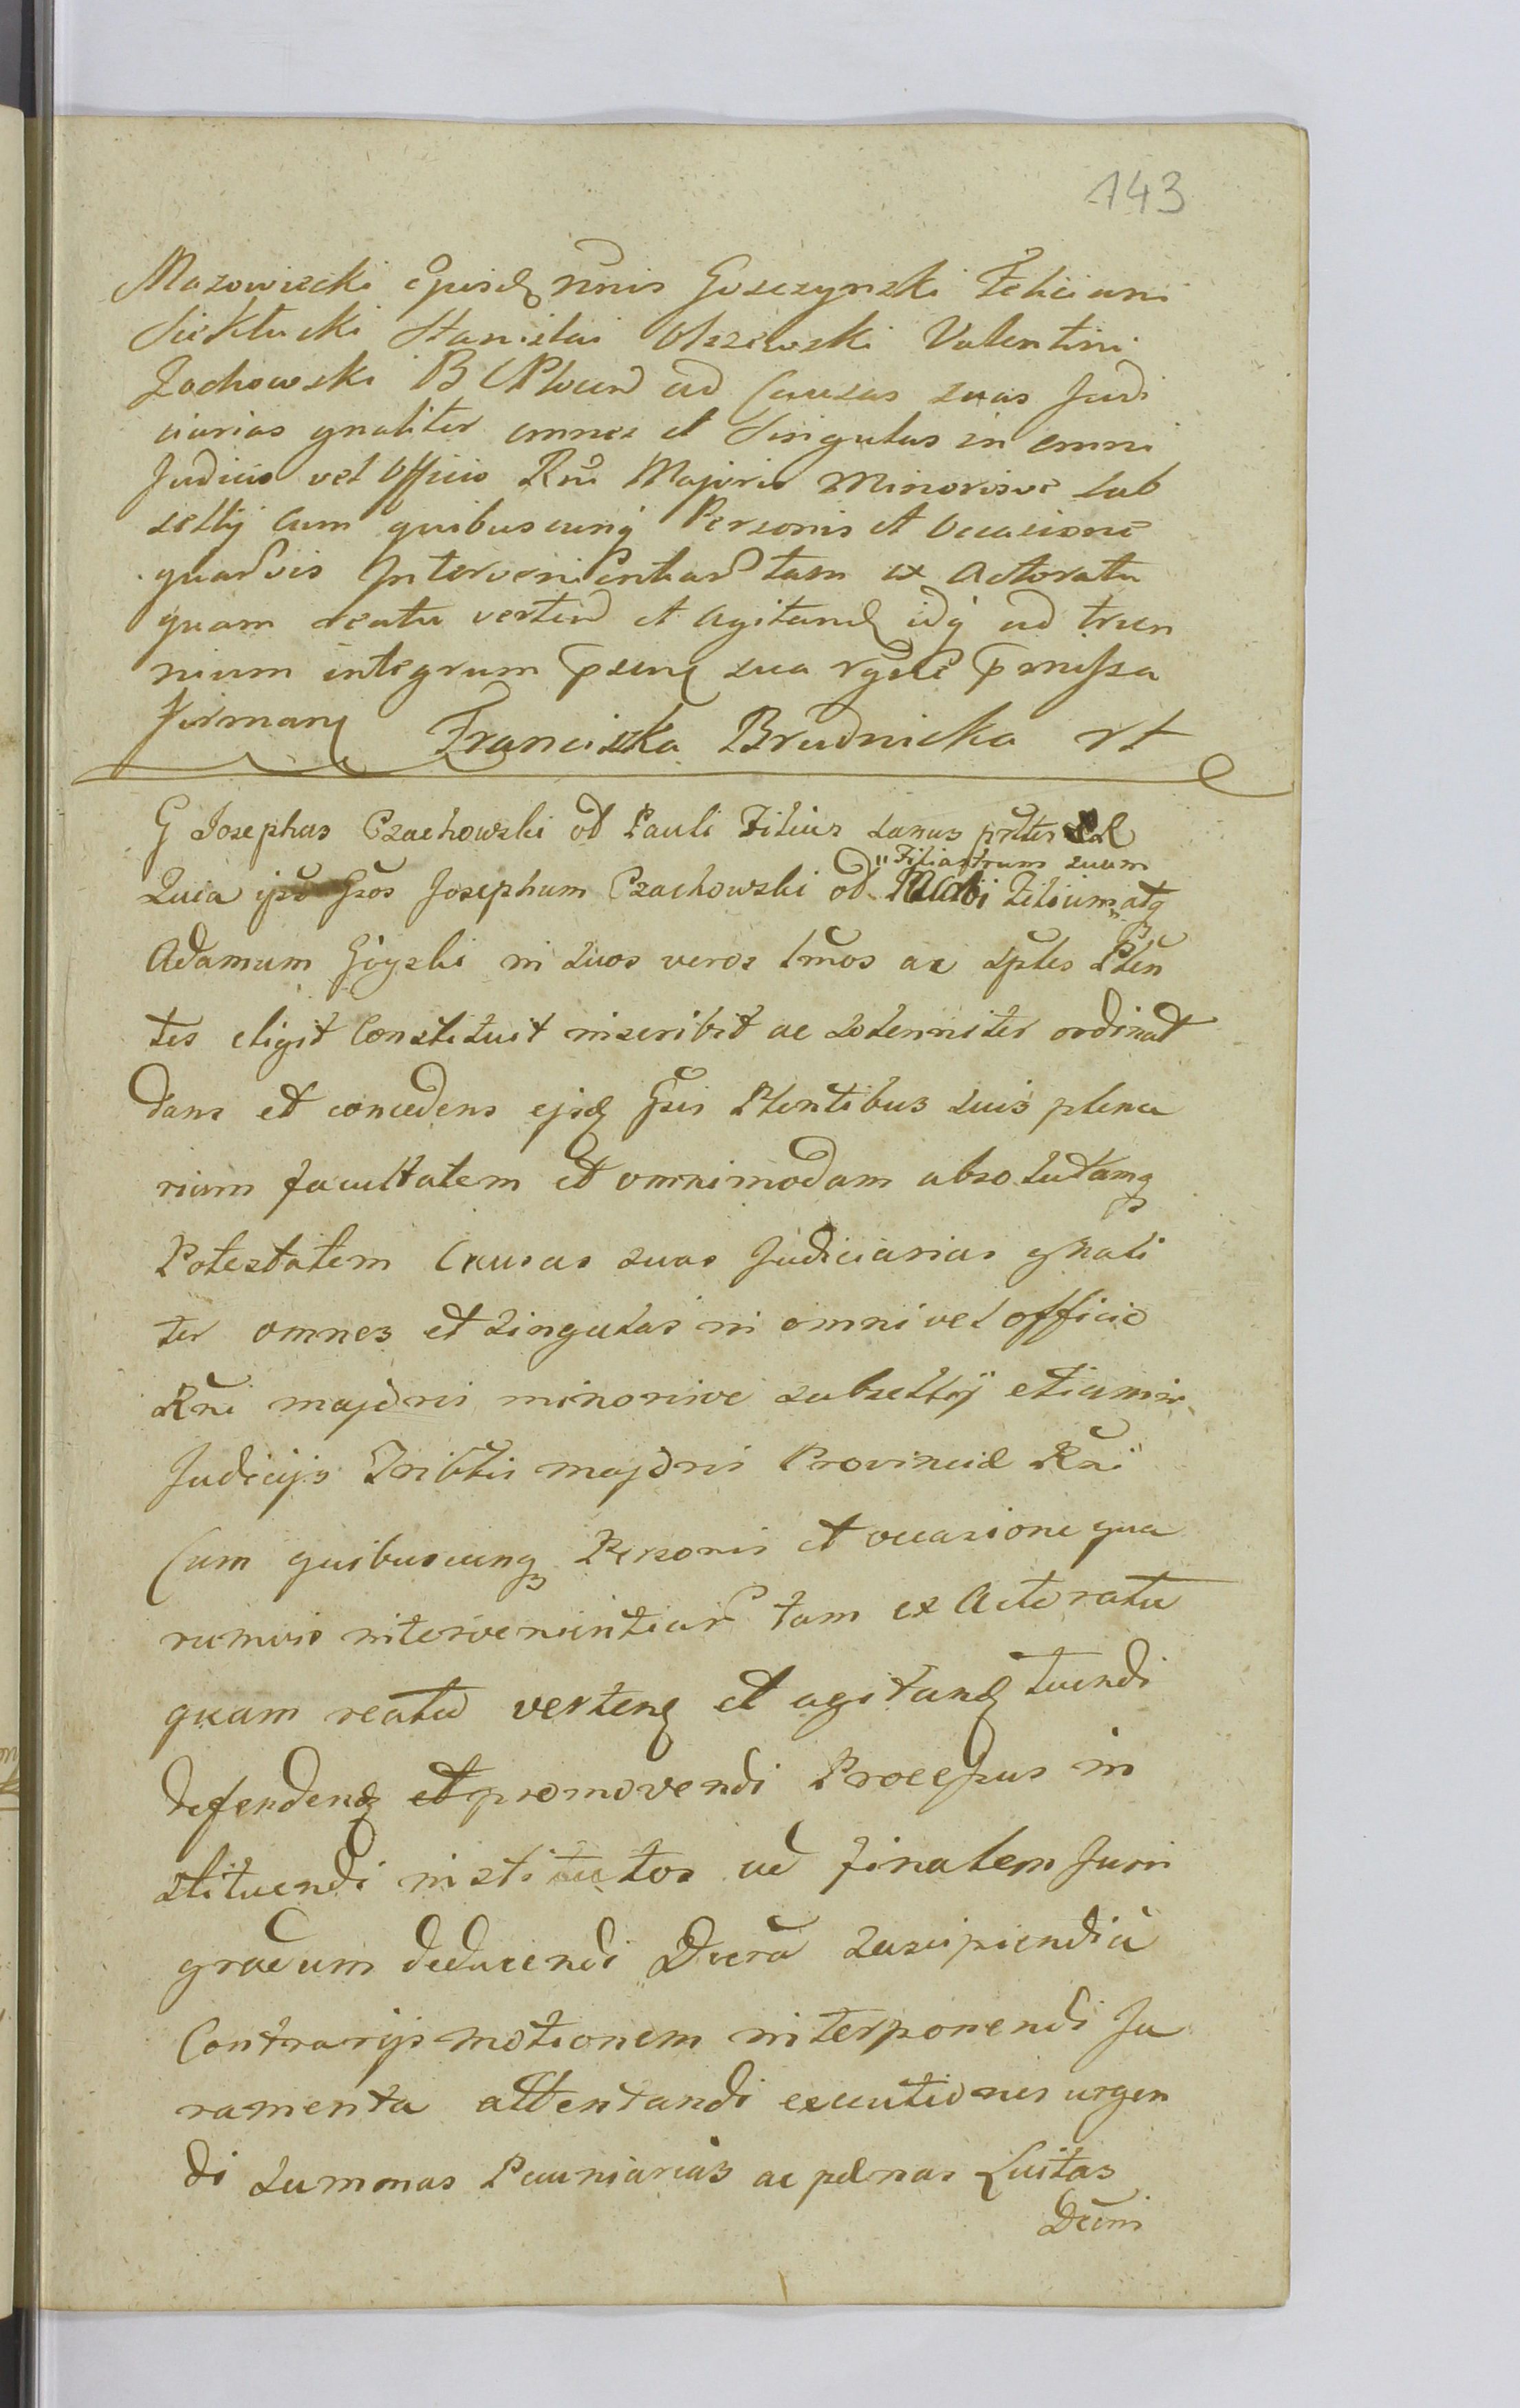 143
Mazowiecki ejusd nōis Goszczynski Feliciani
Siekłucki Stanislai Olszewski Valentini
Zochowski B ad Causas suas Judi
ciarias gnaliter omnes et Singulas in omni
Judicio vel Officio Rni Majoris Minorisve Sub
sellij cum quibuscunq Personis et Occasione
quarvis Intervenientiar tam ex Actoratu
quam reatu vertend et agitand idq ad trien
nium integrum pħenq sua p missa
firmanq Franciszka Brudnicka rt
G Josephus Czachowski od Pauli Filius Sanus prtter Rel
Quia ipse Gsos Josephum Czachowski od Pauli Filium "atq
" Filiastrum suum
Adamum Goyski in Suos veros lmos ac sples Plen
tes eligit Constituit inscribit ac Solenniter ordinat
dans et concedens ejsd Gsis Plentibus suis plena
riam facultatem et omnimodam absolutamq
Potestatem Causas suas Judiciarias gnali
ter omnes et singulas in omni vel officio
Rni majoris minorisve subsellij etiam in
Judicijs Tribtis majoris Provinciæ Rni
Cum quibuscunq Personis et occasione qua
rumvis intervenientiar tam ex Actoratu
quam reatu vertenq et agitanq tuendi
defendenq et promovendi Processus in
stituendi institutos ad finalem Juris
gradum deducendi Dccra suscipiendi a
Contrarijs motionem interponendi Ju
ramenta attentandi executiones urgen
di Summas Pecuniarias ac pænas Luitas
Dcmi